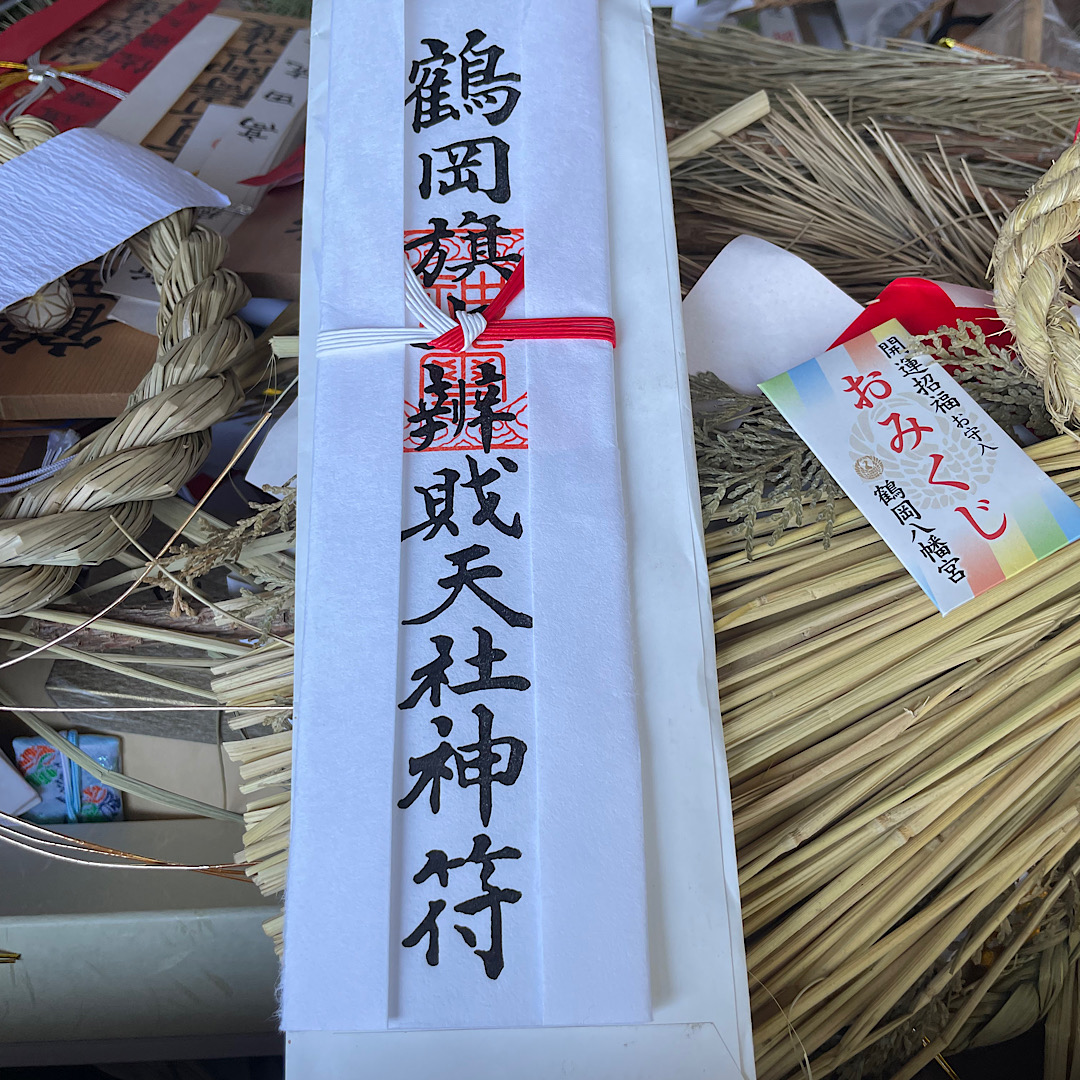 鶴岡旗上辨財天社神符
開運招福 お守入
おみくじ
鶴岡八幡宮